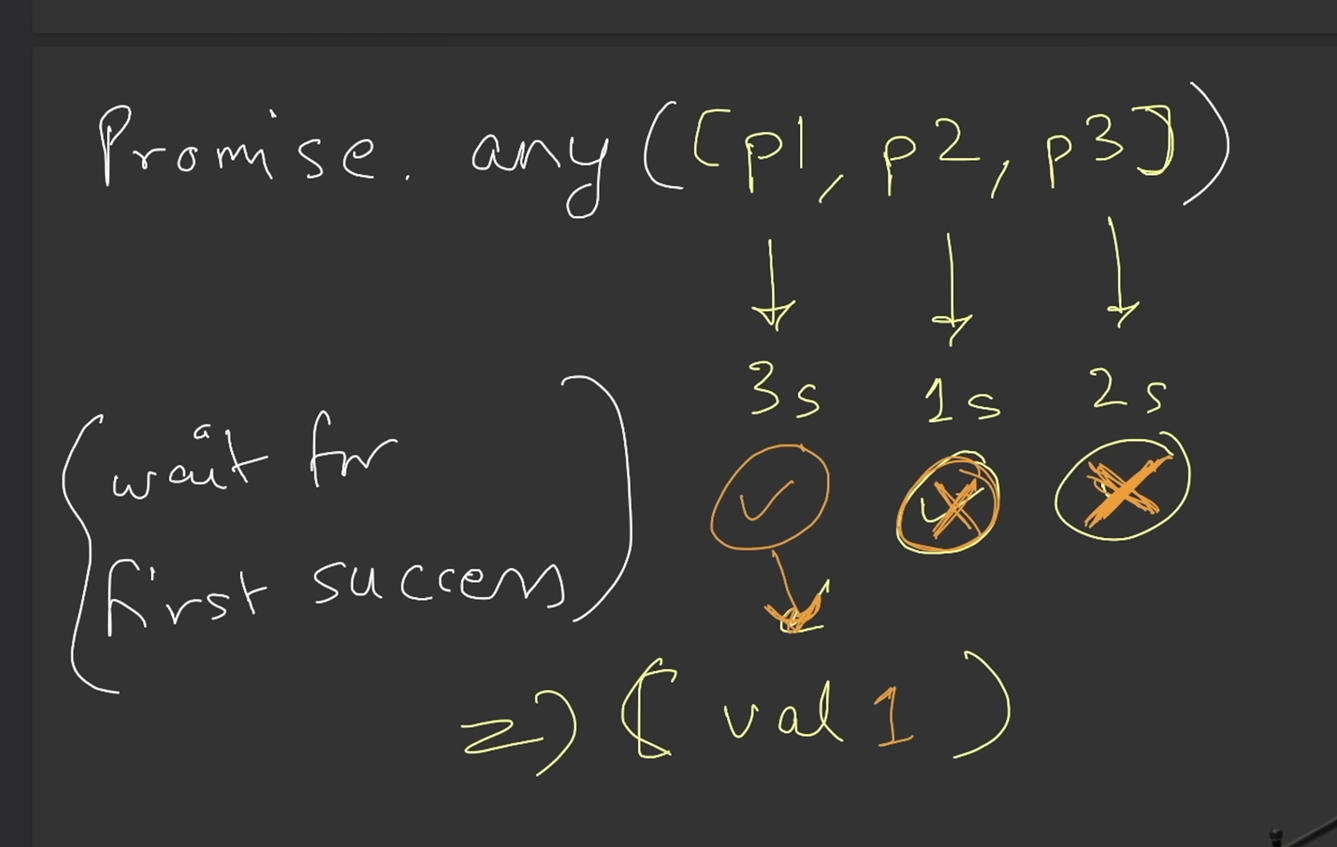 Promise. any([p1, p2, p3])
3s 1s 2s
(wait for
first success)
=> (val 1)